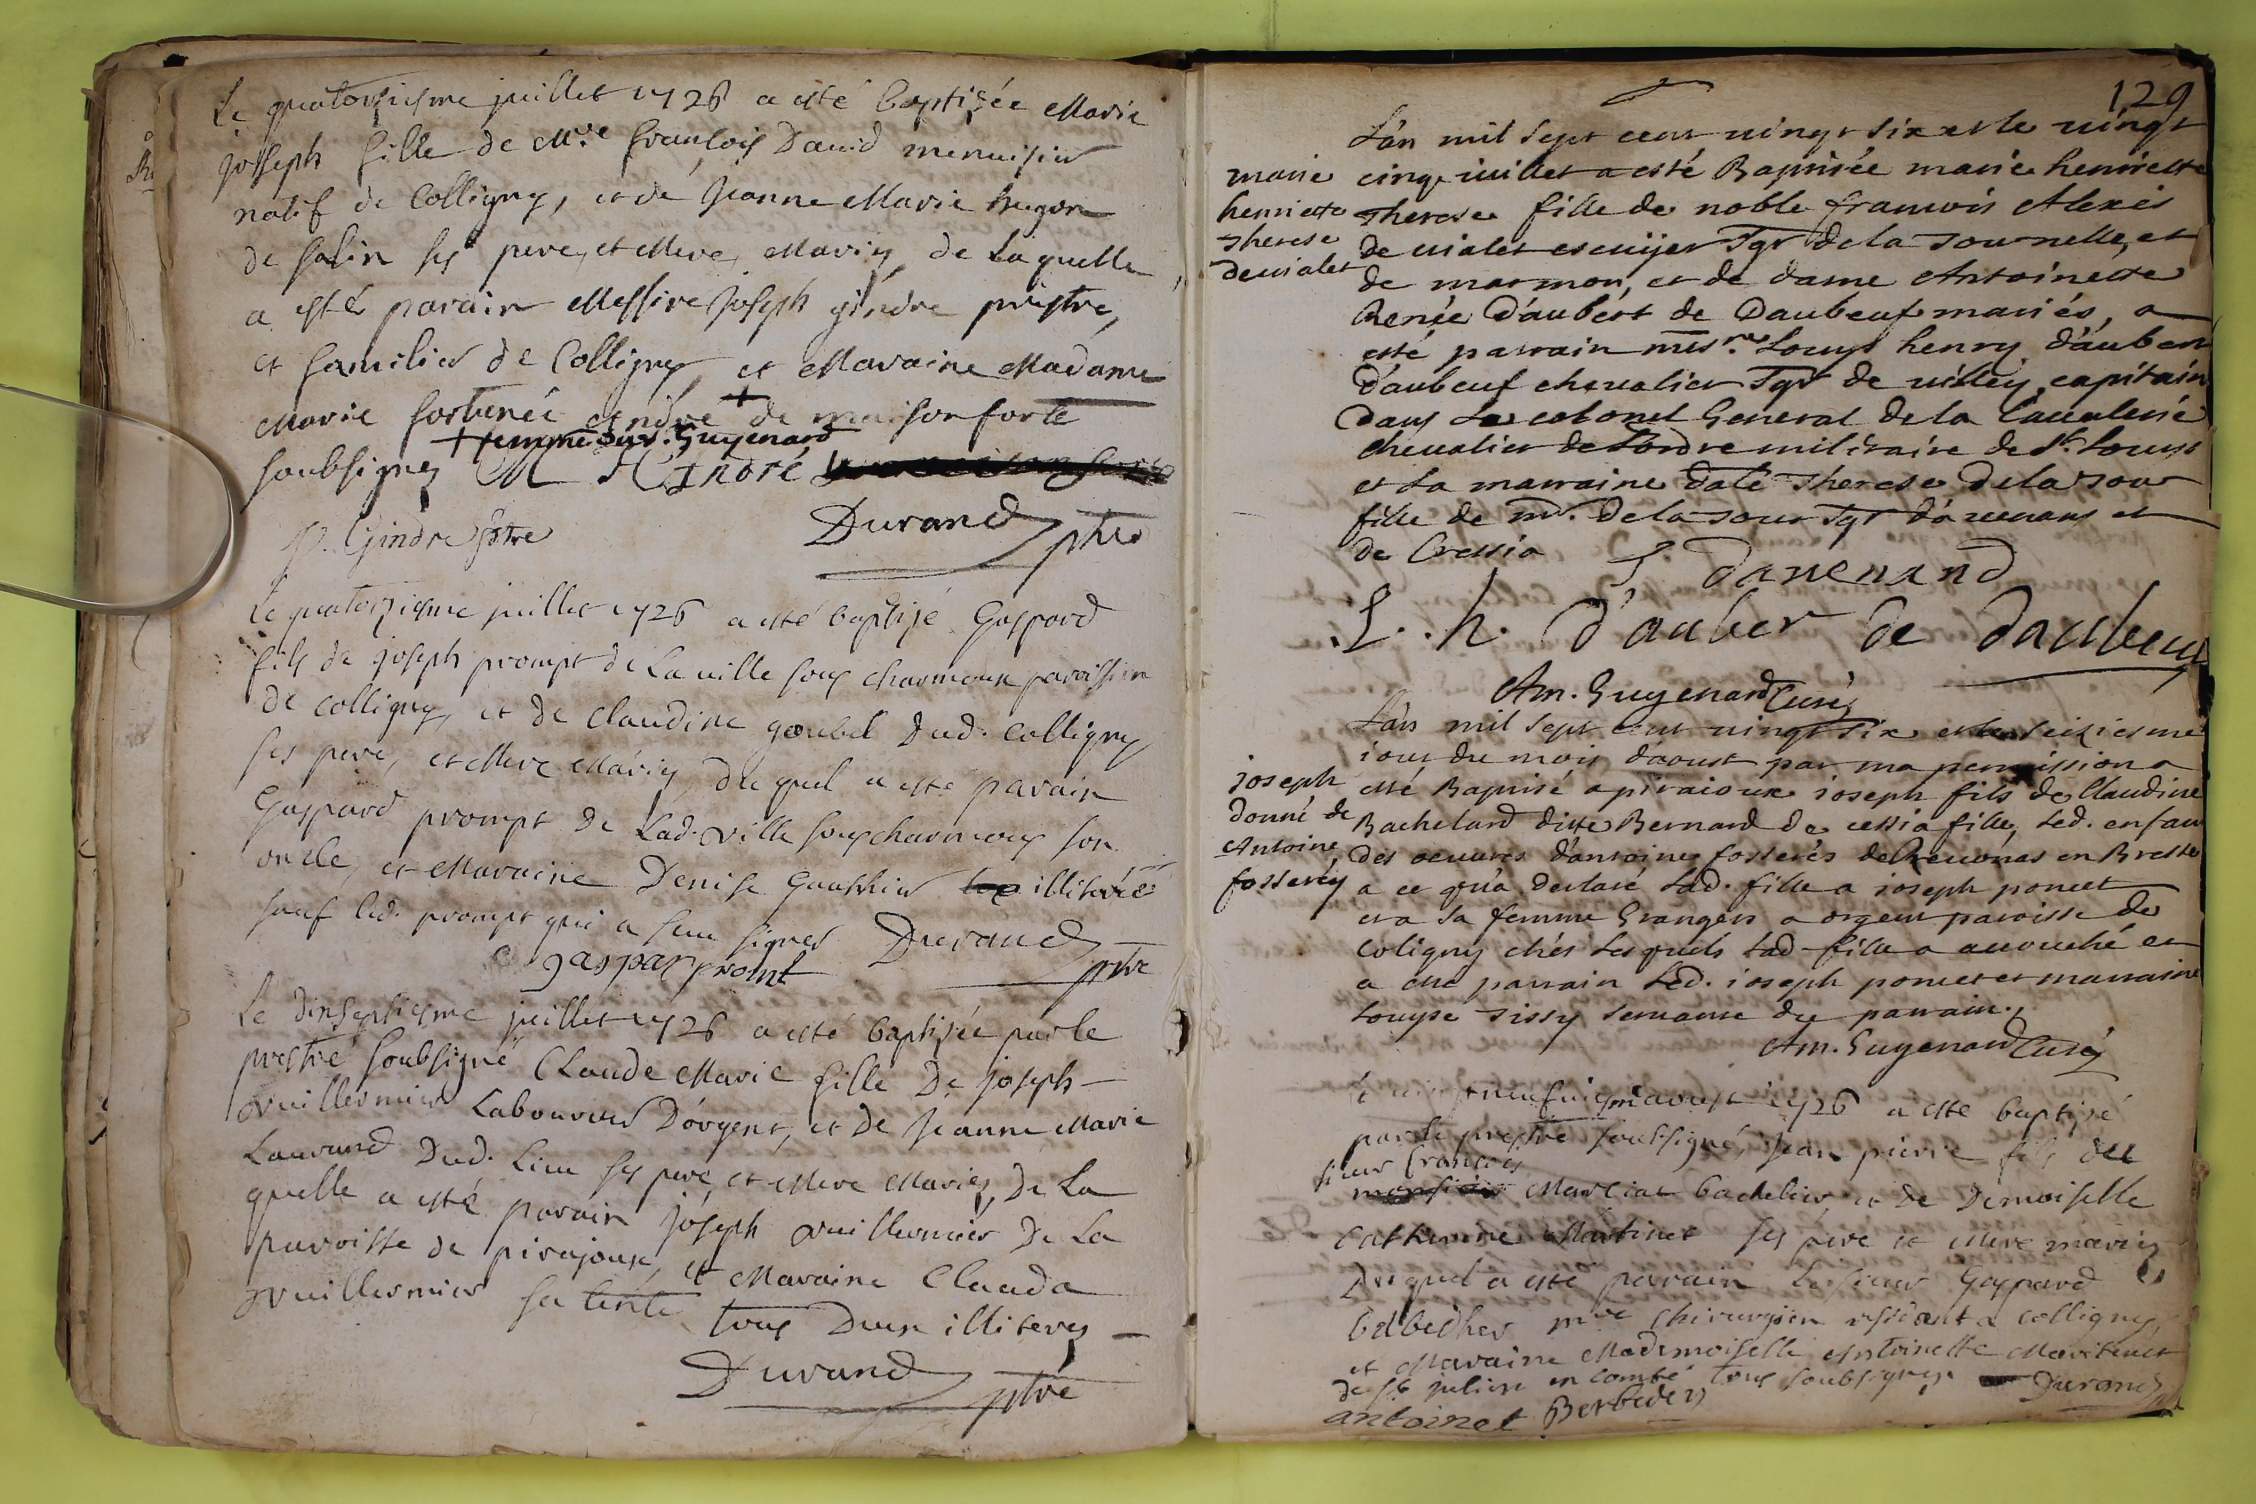 Le quatorziesme juillet 1726 a esté baptizée Marie
joseph fille de Mre francois David menuisier
natif de Colligny, et de Jeanne Marie
de Salin ses pere, et Mere, Mariez, de laquelle
a esté parain Messire Joseph gindre prestre,
et familier de Colligny et Maraine Madame
Marie fortunée André + de maison forte
+ femme du sr. Guyenard
soubsignez M f André
p. Gindre pstre Durand ptre
Le quatorziesme juillet 1726 a esté baptizé Gaspard
fils de joseph prompt de La ville sous charmoux paroissien
de colligny, et de claudine goubet dud. colligny
ses pere, et Mere Mariez, du quel a esté parain
Gaspard prompt de Lad. ville souscharmoux son
oncle, et Maraine Denise Gauthier illiterée
sauf led. prompt qui a sceu signer Durand ptre
gaspar promt
Le dixseptiesme juillet 1726 a esté baptizée par le
prestre soubsigné Claude Marie fille De joseph
vuillermier Laboureur D'orgent, et de Jeanne Marie
Laurand Dud. Lieu ses pere et Mere Mariez, De La
quelle a esté parain joseph vuillermier De La
paroisse de pirajoux, et Maraine Clauda
vuillermier sa tente tous Deux illiteres
Durand ptre
129
L'an mil sept cent vingt six et le vingt
cinq iuillet a esté Baptisée marie henriette
Therese fille de noble francois Alexis
de vialet escuijer sgr de la Tournelle, et
de marmon, et de dame Antoinette
Renée D'aubert de Daubeuf mariés, a
esté parrain messre. Louys henry d'aubert
d'aubeuf chevalier sgr de villey capitain
dans Le colonel General de la Cavalerie
chevalier de Lordre militaire de St. Louys
et La marraine dalé Therese Delatour
fille de mr. Delatour sgr d'arrenans et
de Cressia
marie
henriette
Therese
devialet
T. darrenand
L. h. d'auber de daubeuf
Am. Guyenard Curé
L'an mil sept cent vingt six et le seiziesme
iour du mois d'aoust par ma permission a
esté Baptisé a piraioux ioseph fils de Claudine
Bachelard ditte Bernard de cessia fille, Led. enfant
des oeuvres d'antoine fosserés de Revonas en Bresse
a ce qu'a declaré Lad. fille a ioseph poncet
et a sa femme Grangers a orgent paroisse de
Coligny chés Lesquels Lad fille a accouché et
a esté parrain Led. ioseph poncet et marraine
Louyse Tissy servante du parrain.
joseph
donné de
Antoine
fosserez
Am. Guyenard Curé
aoust 1726 a esté baptizé
par le prestre soubsigné, Jean pierre fils du
sieur francois
Marciat bachelier et de Demoiselle
Catherine Martinet ses pere et Mere mariez
Duquel a esté parain Le sieur Gaspard
mre chirurgien residant a colligny,
et Maraine Mademoiselle Antoinette Martinet
de st julien en comté tous soubsignez. Durand
antoinet Berbedey